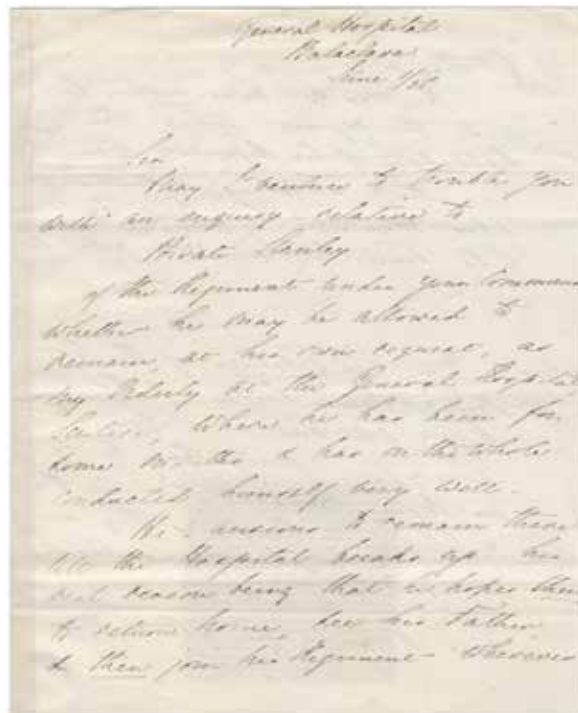 General Hospital
Balaclava
June 1/56
Sir
May I venture to trouble you
with an enquiry relative to
Private Stanley
of the Regiment under your Command
whether he may be allowed to
remain, at his own request, as
my Orderly at the General Hospital
Scutari, where he has been for
some months & has on the whole
conducted himself very well.
He is anxious to remain there
till the Hospital breaks up his
real reason being that he hopes then
to return home, see his Father
& then join his Regiment wherever